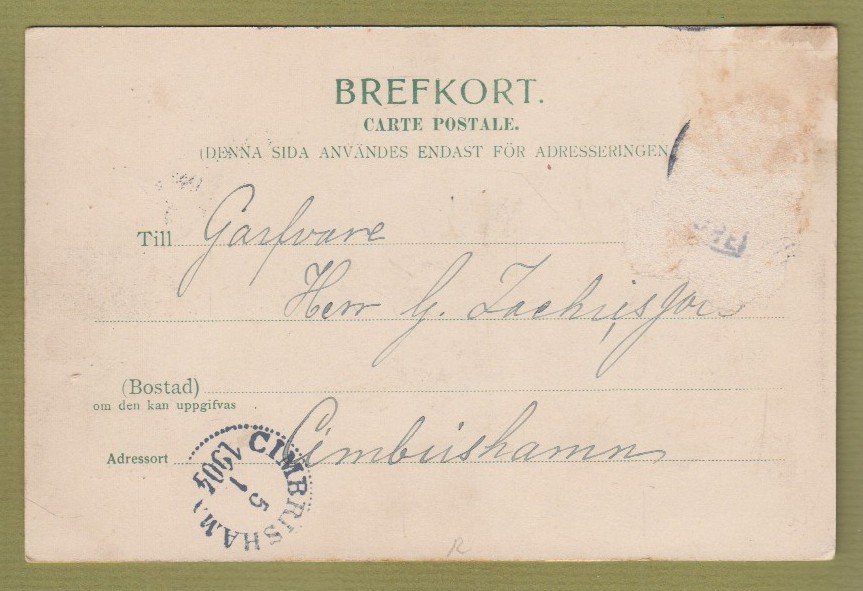 BREFKORT.
CARTE POSTALE.
(DENNA SIDA ANVÄNDES ENDAST FÖR ADRESSERINGEN
Till Garfvare
Herr G. Zachrisson
(Bostad)
om den kan uppgifvas
Adressort Cimbrishamn
CIMBRISHAMN
1904
5 1
R